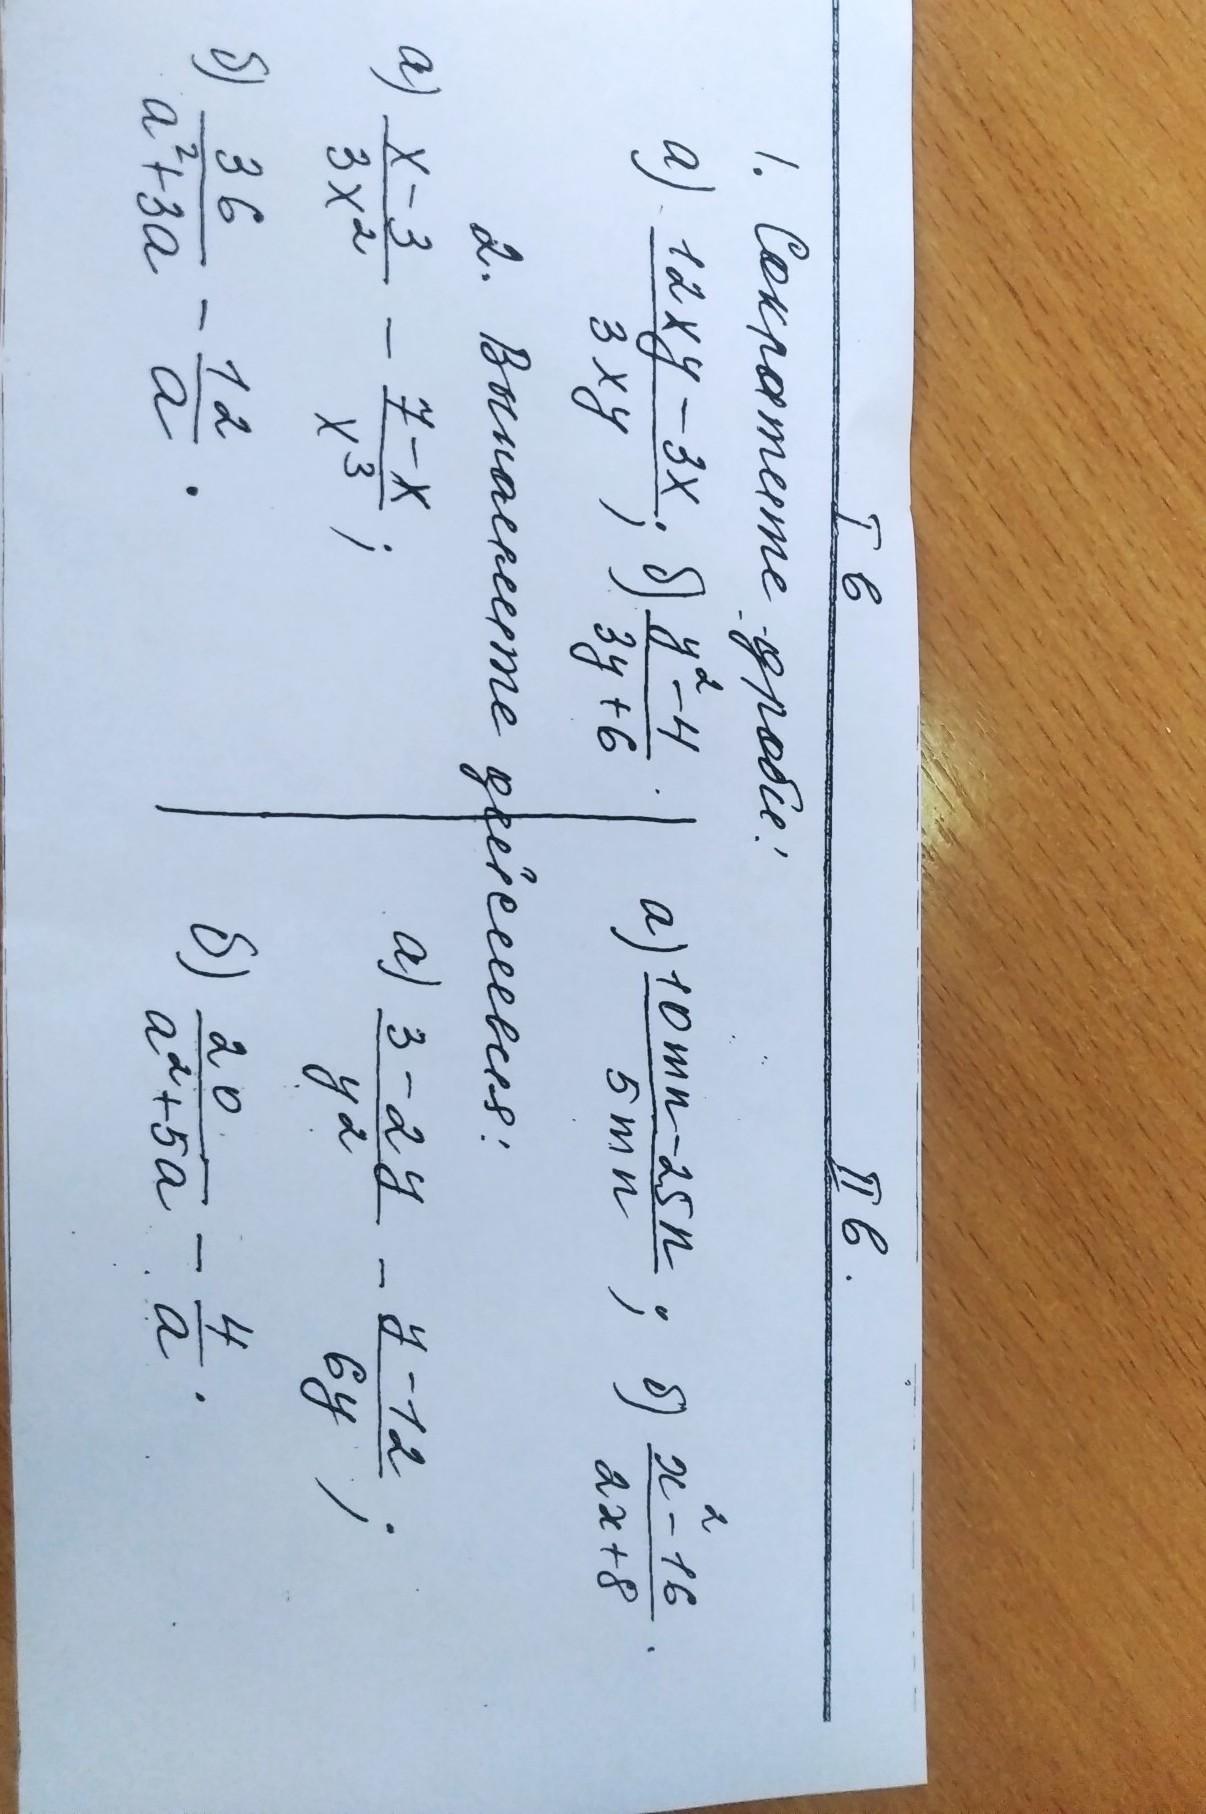 I в II в.
1. Сократите дроби:
а) (12xy-3x)/(3xy); б) (y²-4)/(3y+6). а) (10mn-25n)/(5mn); б) (x²-16)/(2x+8).
2. Выполните действия:
а) (x-3)/(3x²) - (7-x)/(x³); а) (3-2y)/(y²) - (y-12)/(6y);
б) 36/(a²+3a) - 12/a. б) 20/(a²+5a) - 4/a.